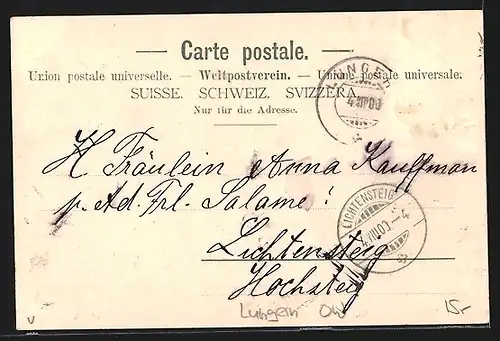 — Carte postale. —
Union postale universelle. — Weltpostverein. — Unione postale universale.
SUISSE. SCHWEIZ. SVIZZERA.
Nur für die Adresse.
LUNGERN
4.III.00
H Fräulein Anna Kauffmann
p. Ad. Frl. Salame!
LICHTENSTEIG
Lichtensteig
Hochsteig
Lungern Ow
15.-
v